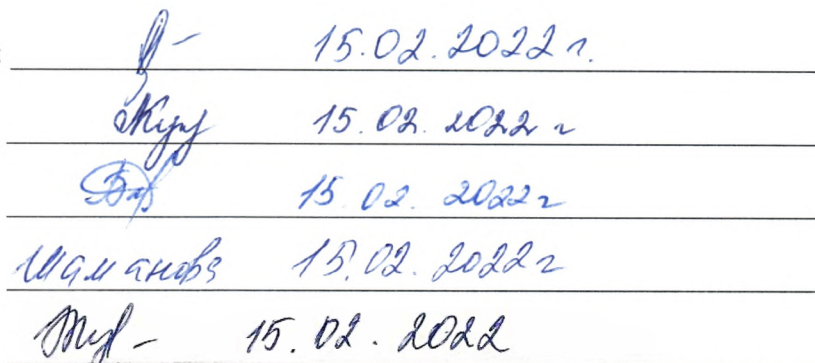 15.02.2022 г.
15.02.2022 г
15.02.2022 г
Шаманова 15.02.2022 г
15.02.2022